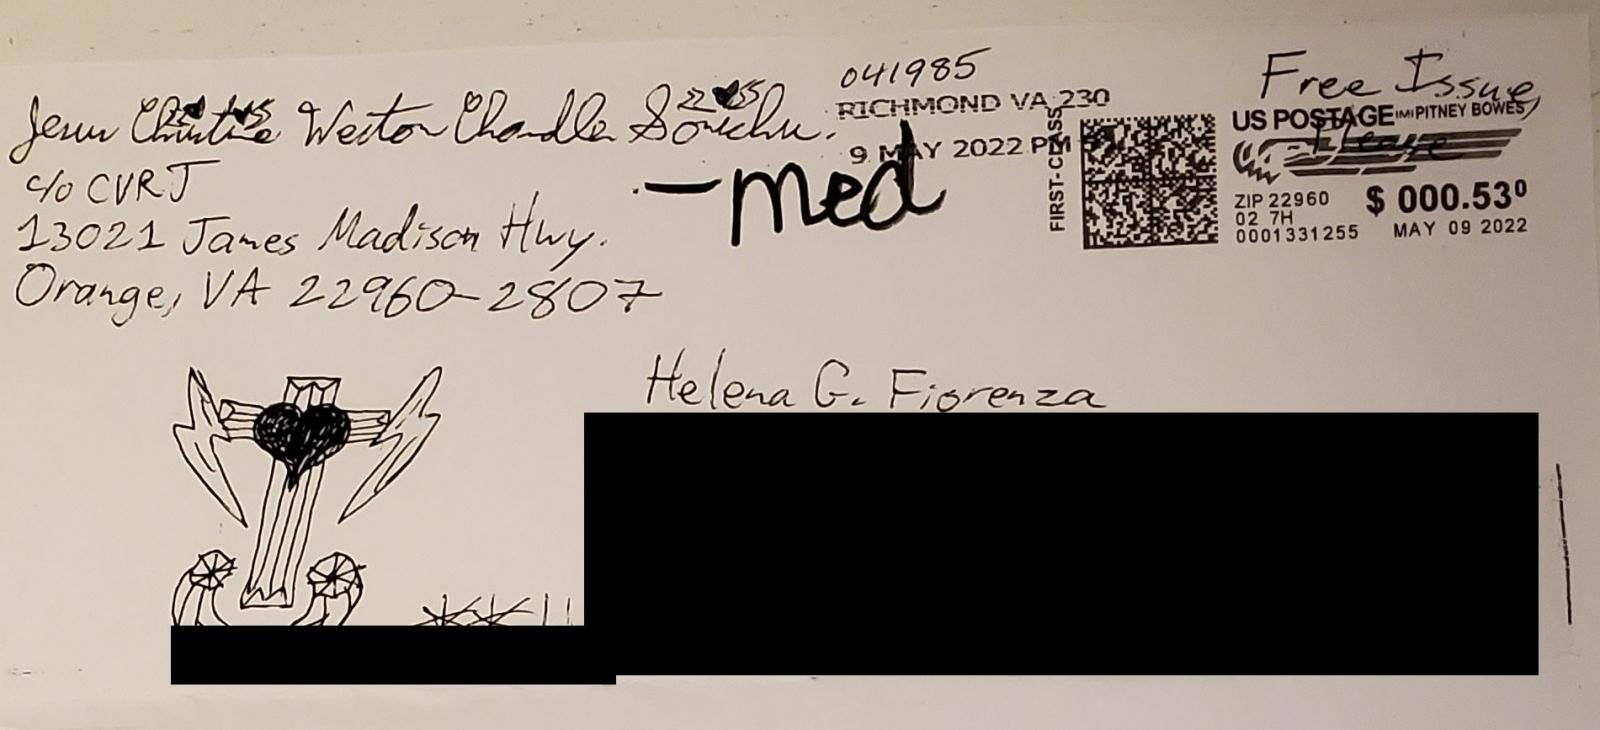 Jesus Christine Weston Chandler Sonichu.
c/o CVRJ
13021 James Madison Hwy.
Orange, VA 22960-2807
041985
RICHMOND VA 230
9 MAY 2022 PM
-med
FIRST-CLASS
Free Issue,
Please
US POSTAGE IMI PITNEY BOWES
ZIP 22960
02 7H
0001331255
$ 000.53⁰
MAY 09 2022
Helena G. Fiorenza